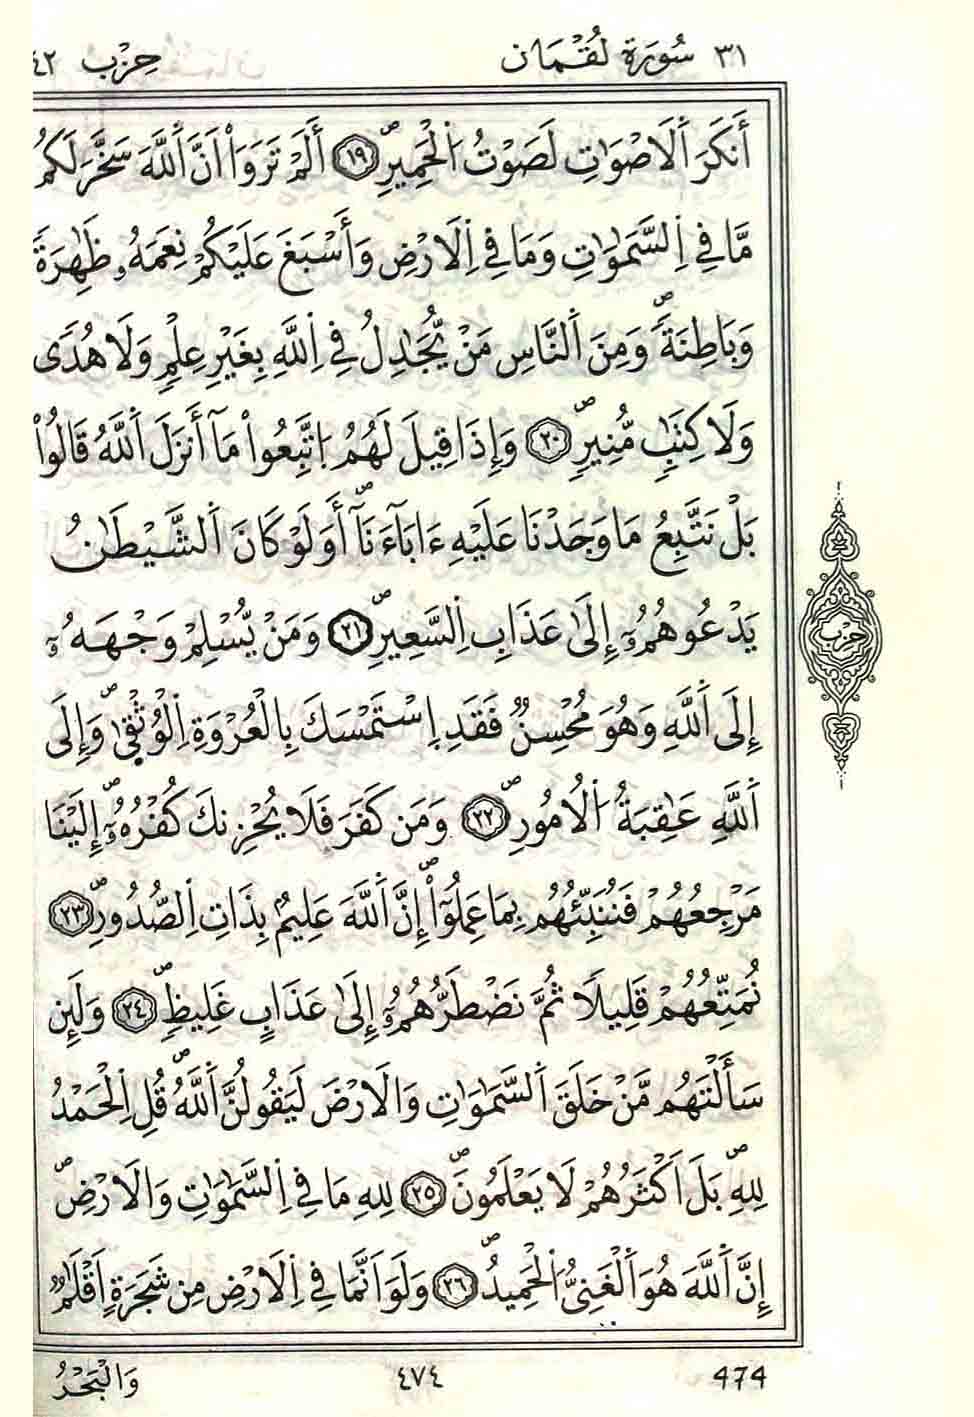 ٣١ سُورَة لُقْمَان حِزْب ٤٢
أَنكَرَ اَلَاصْوَٰتِ لَصَوْتُ اُلْحَمِيرِۖ ١٩ أَلَمْ تَرَوَاْ اَنَّ اَللَّهَ سَخَّرَ لَكُم
مَّا فِے اِلسَّمَٰوَٰتِ وَمَا فِے اِلَارْضِ وَأَسْبَغَ عَلَيْكُمْ نِعَمَهُۥ ظَٰهِرَةٗ
وَبَاطِنَةٗۖ وَمِنَ اَلنَّاسِ مَنْ يُّجَٰدِلُ فِے اِللَّهِ بِغَيْرِ عِلْمٖ وَلَا هُدىٗ
وَلَا كِتَٰبٖ مُّنِيرٖۖ ٢٠ وَإِذَا قِيلَ لَهُمُ اُتَّبِعُواْ مَآ أَنزَلَ اَللَّهُ قَالُواْ
بَلْ نَتَّبِعُ مَا وَجَدْنَا عَلَيْهِ ءَابَآءَنَآۖ أَوَلَوْ كَانَ اَلشَّيْطَٰنُ
يَدْعُوهُمُۥٓ إِلَىٰ عَذَابِ اِلسَّعِيرِۖ ٢١ وَمَنْ يُّسْلِمْ وَجْهَهُۥٓ
إِلَى اَللَّهِ وَهُوَ مُحْسِنٞ فَقَدِ اِسْتَمْسَكَ بِالْعُرْوَةِ اِلْوُثْقۭىٰۖ وَإِلَى
اَللَّهِ عَٰقِبَةُ اُلُامُورِۖ ٢٢ وَمَن كَفَرَ فَلَا يُحْزِنكَ كُفْرُهُۥٓۖ إِلَيْنَا
مَرْجِعُهُمْ فَنُنَبِّئُهُم بِمَا عَمِلُوٓاْۖ إِنَّ اَللَّهَ عَلِيمُۢ بِذَاتِ اِلصُّدُورِۖ ٢٣
نُمَتِّعُهُمْ قَلِيلاٗ ثُمَّ نَضْطَرُّهُمُۥٓ إِلَىٰ عَذَابٍ غَلِيظٖۖ ٢٤ وَلَئِن
سَأَلْتَهُم مَّنْ خَلَقَ اَلسَّمَٰوَٰتِ وَالَارْضَ لَيَقُولُنَّ اَللَّهُۖ قُلِ اِلْحَمْدُ
لِلهِۖ بَلَ اَكْثَرُهُمْ لَا يَعْلَمُونَۖ ٢٥ لِلهِ مَا فِے اِلسَّمَٰوَٰتِ وَالَارْضِۖ
إِنَّ اَللَّهَ هُوَ اَلْغَنِيُّ اُلْحَمِيدُۖ ٢٦ وَلَوَ اَنَّمَا فِے اِلَارْضِ مِن شَجَرَةٍ اَقْلَٰمٞ
حِزْب
474 ٤٧٤ وَالْبَحْرُ